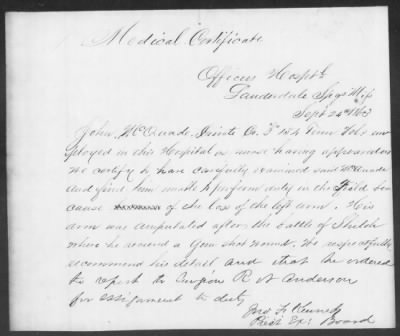 Medical Certificate
Officers Hospt.
Lauderdale Spgs Miss
Sept 24th 1863
John McQuade Private Co. F 154 Tenn Vols em
ployed in this Hospital as nurse having applied
we certify to have carefully examined said McQuade
and find him unfit to perform duty in the Field be
cause of the loss of the left arm. His
arm was amputated after the battle of Shiloh
where he received a Gun shot wound. We respectfully
recommend his detail and that he ordered
to report to Surgeon R N Anderson
for assignment to duty
Jno F. Kennedy
Prest Ex: Board